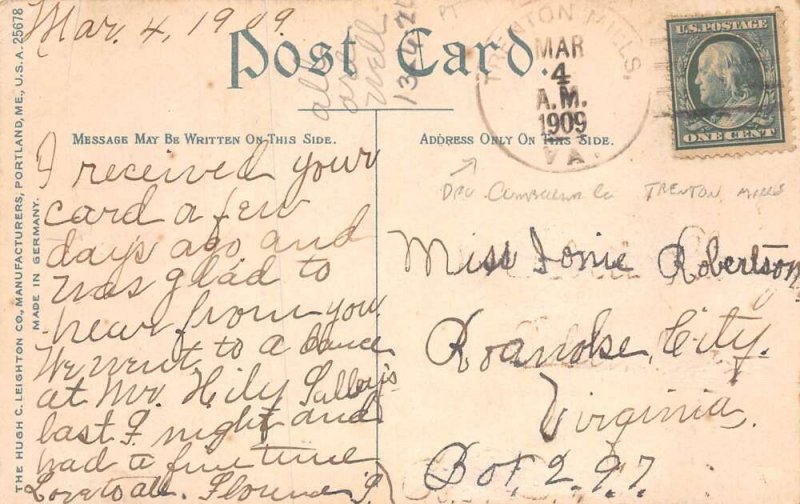 Mar. 4, 1909
Post Card.
TRENTON MILLS,
MAR
4
A.M.
1909
VA.
U.S. POSTAGE
ONE CENT
MESSAGE MAY BE WRITTEN ON THIS SIDE.
ADDRESS ONLY ON THIS SIDE.
THE HUGH C. LEIGHTON CO., MANUFACTURERS, PORTLAND, ME., U.S.A. 25678
MADE IN GERMANY.
I received your
card a few
days ago and
was glad to
hear from you.
We went to a dance
at Mr. Hily Salley's
last F. night and
had a fine time
Love to all. Florence
DPO Cumberland Co TRENTON MILLS
Miss Ionie Robertson
Roanoke City.
Virginia.
Box 297.